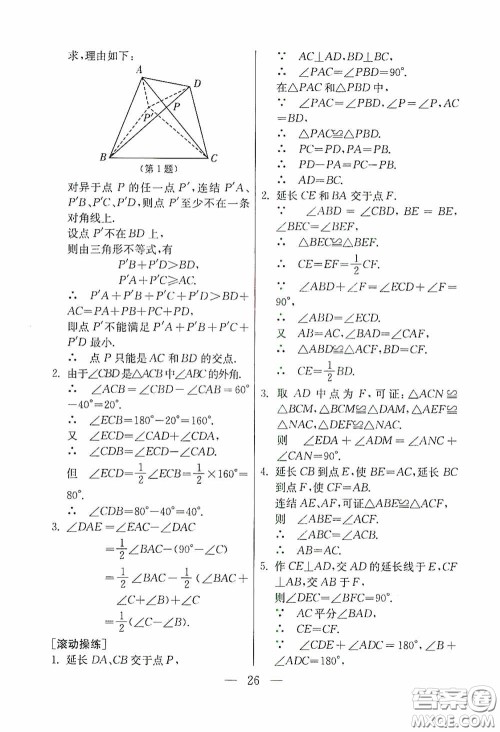 求,理由如下:
A
D
P′
P
B
C
(第1题)
对异于点 P 的任一点 P′,连结 P′A、
P′B、P′C、P′D,则点 P′至少不在一条
对角线上.
设点 P′不在 BD 上,
则由三角形不等式,有
P′B+P′D>BD,
P′A+P′C⩾AC.
∴ P′A+P′B+P′C+P′D>BD+
AC=PA+PB+PC+PD,
即点 P′不能满足 P′A+P′B+P′C+
P′D 最小.
∴ 点 P 只能是 AC 和 BD 的交点.
2. 由于∠CBD是△ACB中∠ABC的外角.
∴ ∠ACB=∠CBD-∠CAB=60°
-40°=20°.
∴ ∠ECB=180°-20°=160°.
又 ∠ECD=∠CAD+∠CDA,
∴ ∠CBD=∠ECD.
但 ∠ECD=1/2∠ECB=1/2×160°=
80°.
∴ ∠CDB=80°-40°=40°.
3. ∠DAE=∠EAC-∠DAC
=1/2∠BAC-(90°-∠C)
=1/2∠BAC-1/2(∠BAC+
∠C+∠B)+∠C
=1/2(∠C-∠B).
[滚动操练]
1. 延长 DA、CB 交于点 P,
∵ AC⊥AD,BD⊥BC,
∴ ∠PAC=∠PBD=90°.
在△PAC 和△PBD 中,
∵ ∠PAC=∠PBD,∠P=∠P,AC
=BD,
∴ △PAC≌△PBD.
∴ PC=PD,PA=PB.
∴ PD-PA=PC-PB.
∴ AD=BC.
2. 延长 CE 和 BA 交于点 F.
∵ ∠ABD=∠CBD, BE=BE,
∠BEC=∠BEF,
∴ △BEC≌△BEF.
∴ CE=EF=1/2CF.
∵ ∠ABD+∠F=∠ECD+∠F=
90°,
∴ ∠ABD=∠ECD.
又 AB=AC,∠BAD=∠CAF,
∴ △ABD≌△ACF,BD=CF.
∴ CE=1/2BD.
3. 取 AD 中点为 F,可证:△ACN≌
△BCM,△BCM≌△DAM,△AEF≌
△NAC,△DEF≌△NAC.
则 ∠EDA+∠ADM=∠ANC+
∠CAN=90°.
4. 延长 CB 到点 E,使 BE=AC,延长 BC
到点 F,使 CF=AB.
连结 AE、AF,可证△ABE≌△ACF.
则 ∠ABE=∠ACF.
∴ ∠ABC=∠ACB.
∴ AB=AC.
5. 作 CE⊥AD,交 AD 的延长线于 E,CF
⊥AB,交 AB 于 F,
则∠DEC=∠BFC=90°.
∵ AC平分∠BAD,
∴ CE=CF.
∵ ∠CDE+∠ADC=180°,∠B+
∠ADC=180°,
— 26 —